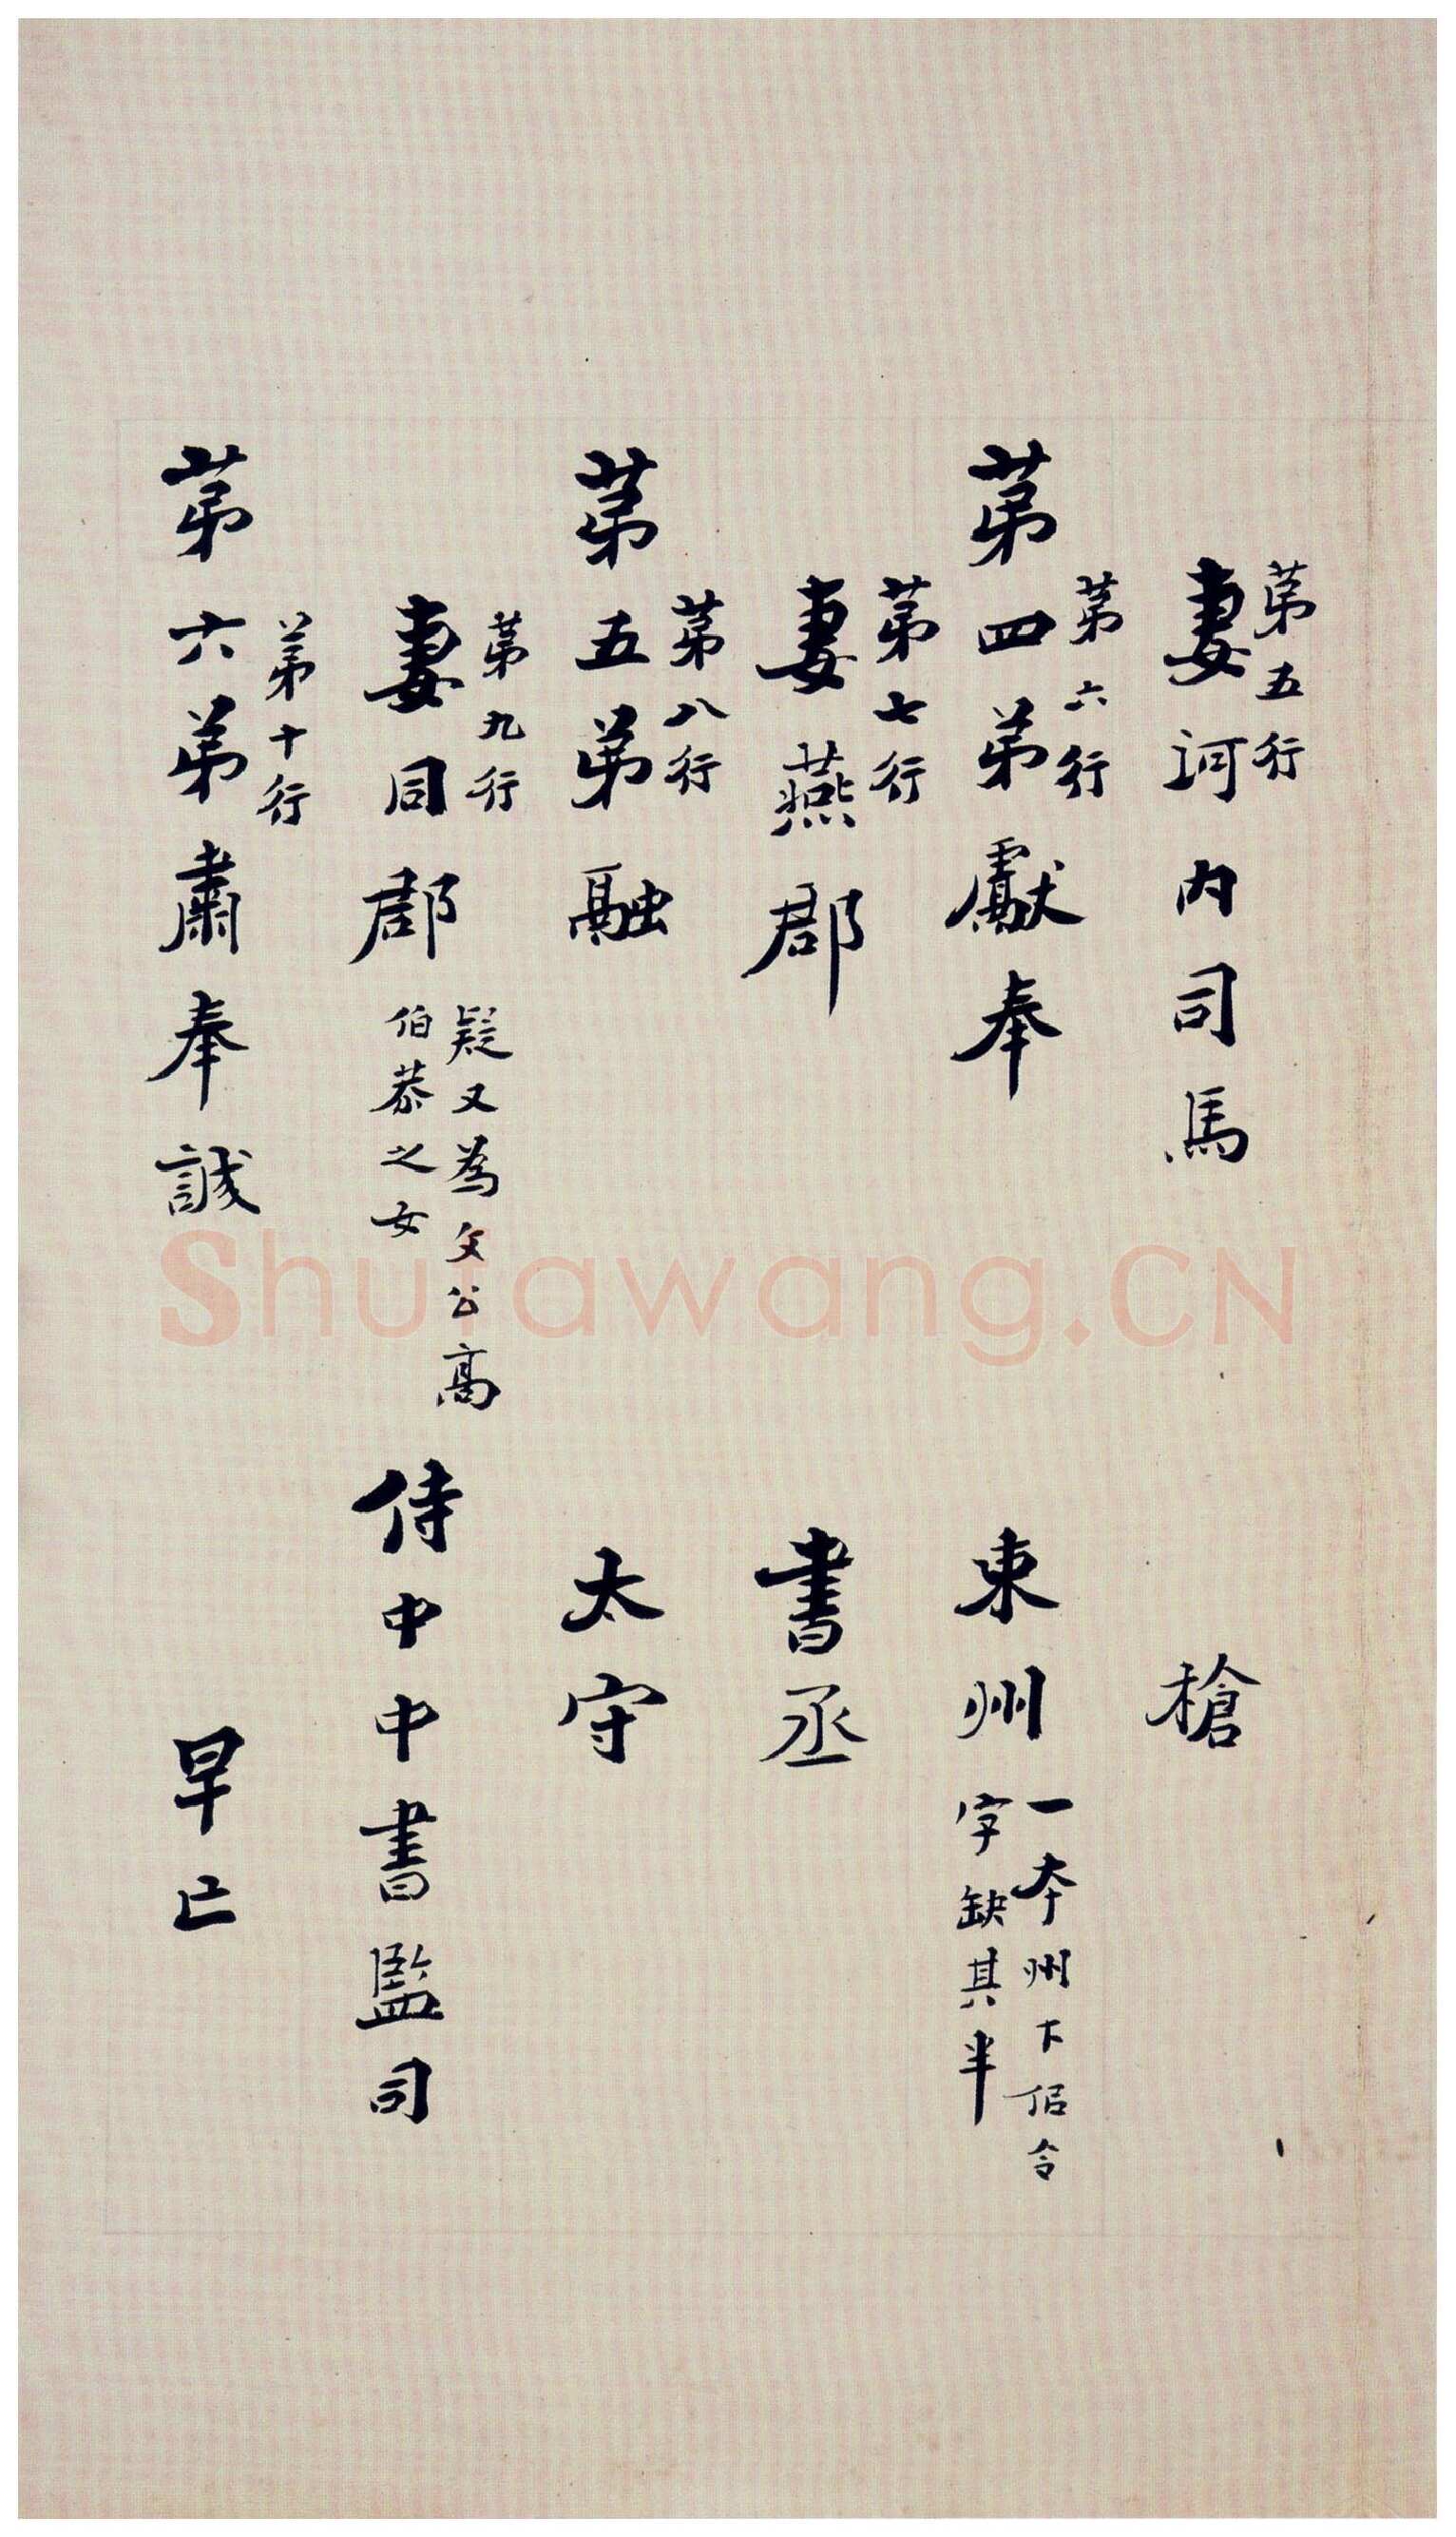 第五行
妻河内司馬 槍
第六行
第四弟獻奉 東州 一本州下佀令
字缺其半
第七行
妻燕郡 書丞
第八行
第五弟融 太守
第九行
妻同郡 疑又為文公高
伯恭之女 侍中中書監司
第十行
第六弟肅奉誠 早亡
Shufawang.CN